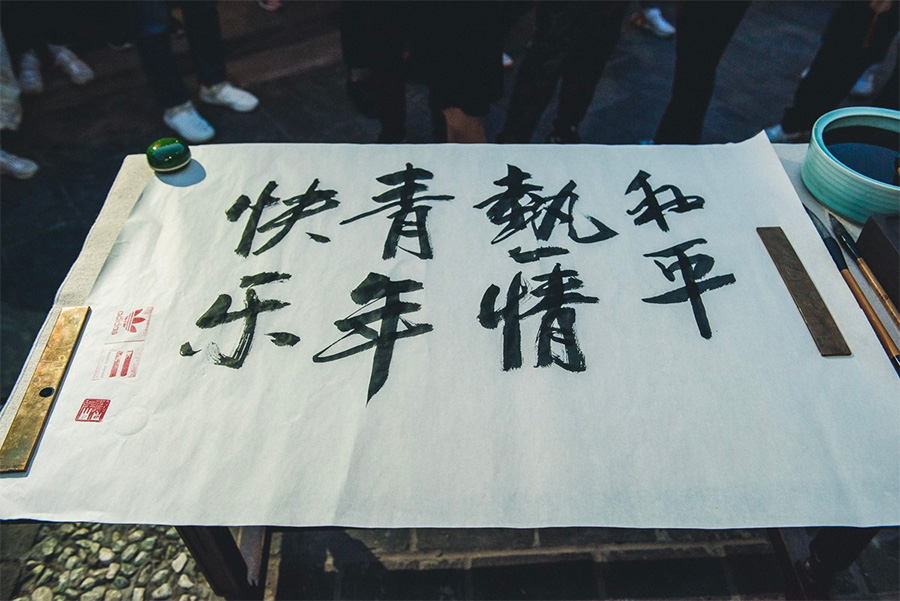 和平
熱情
青年
快乐
adidas